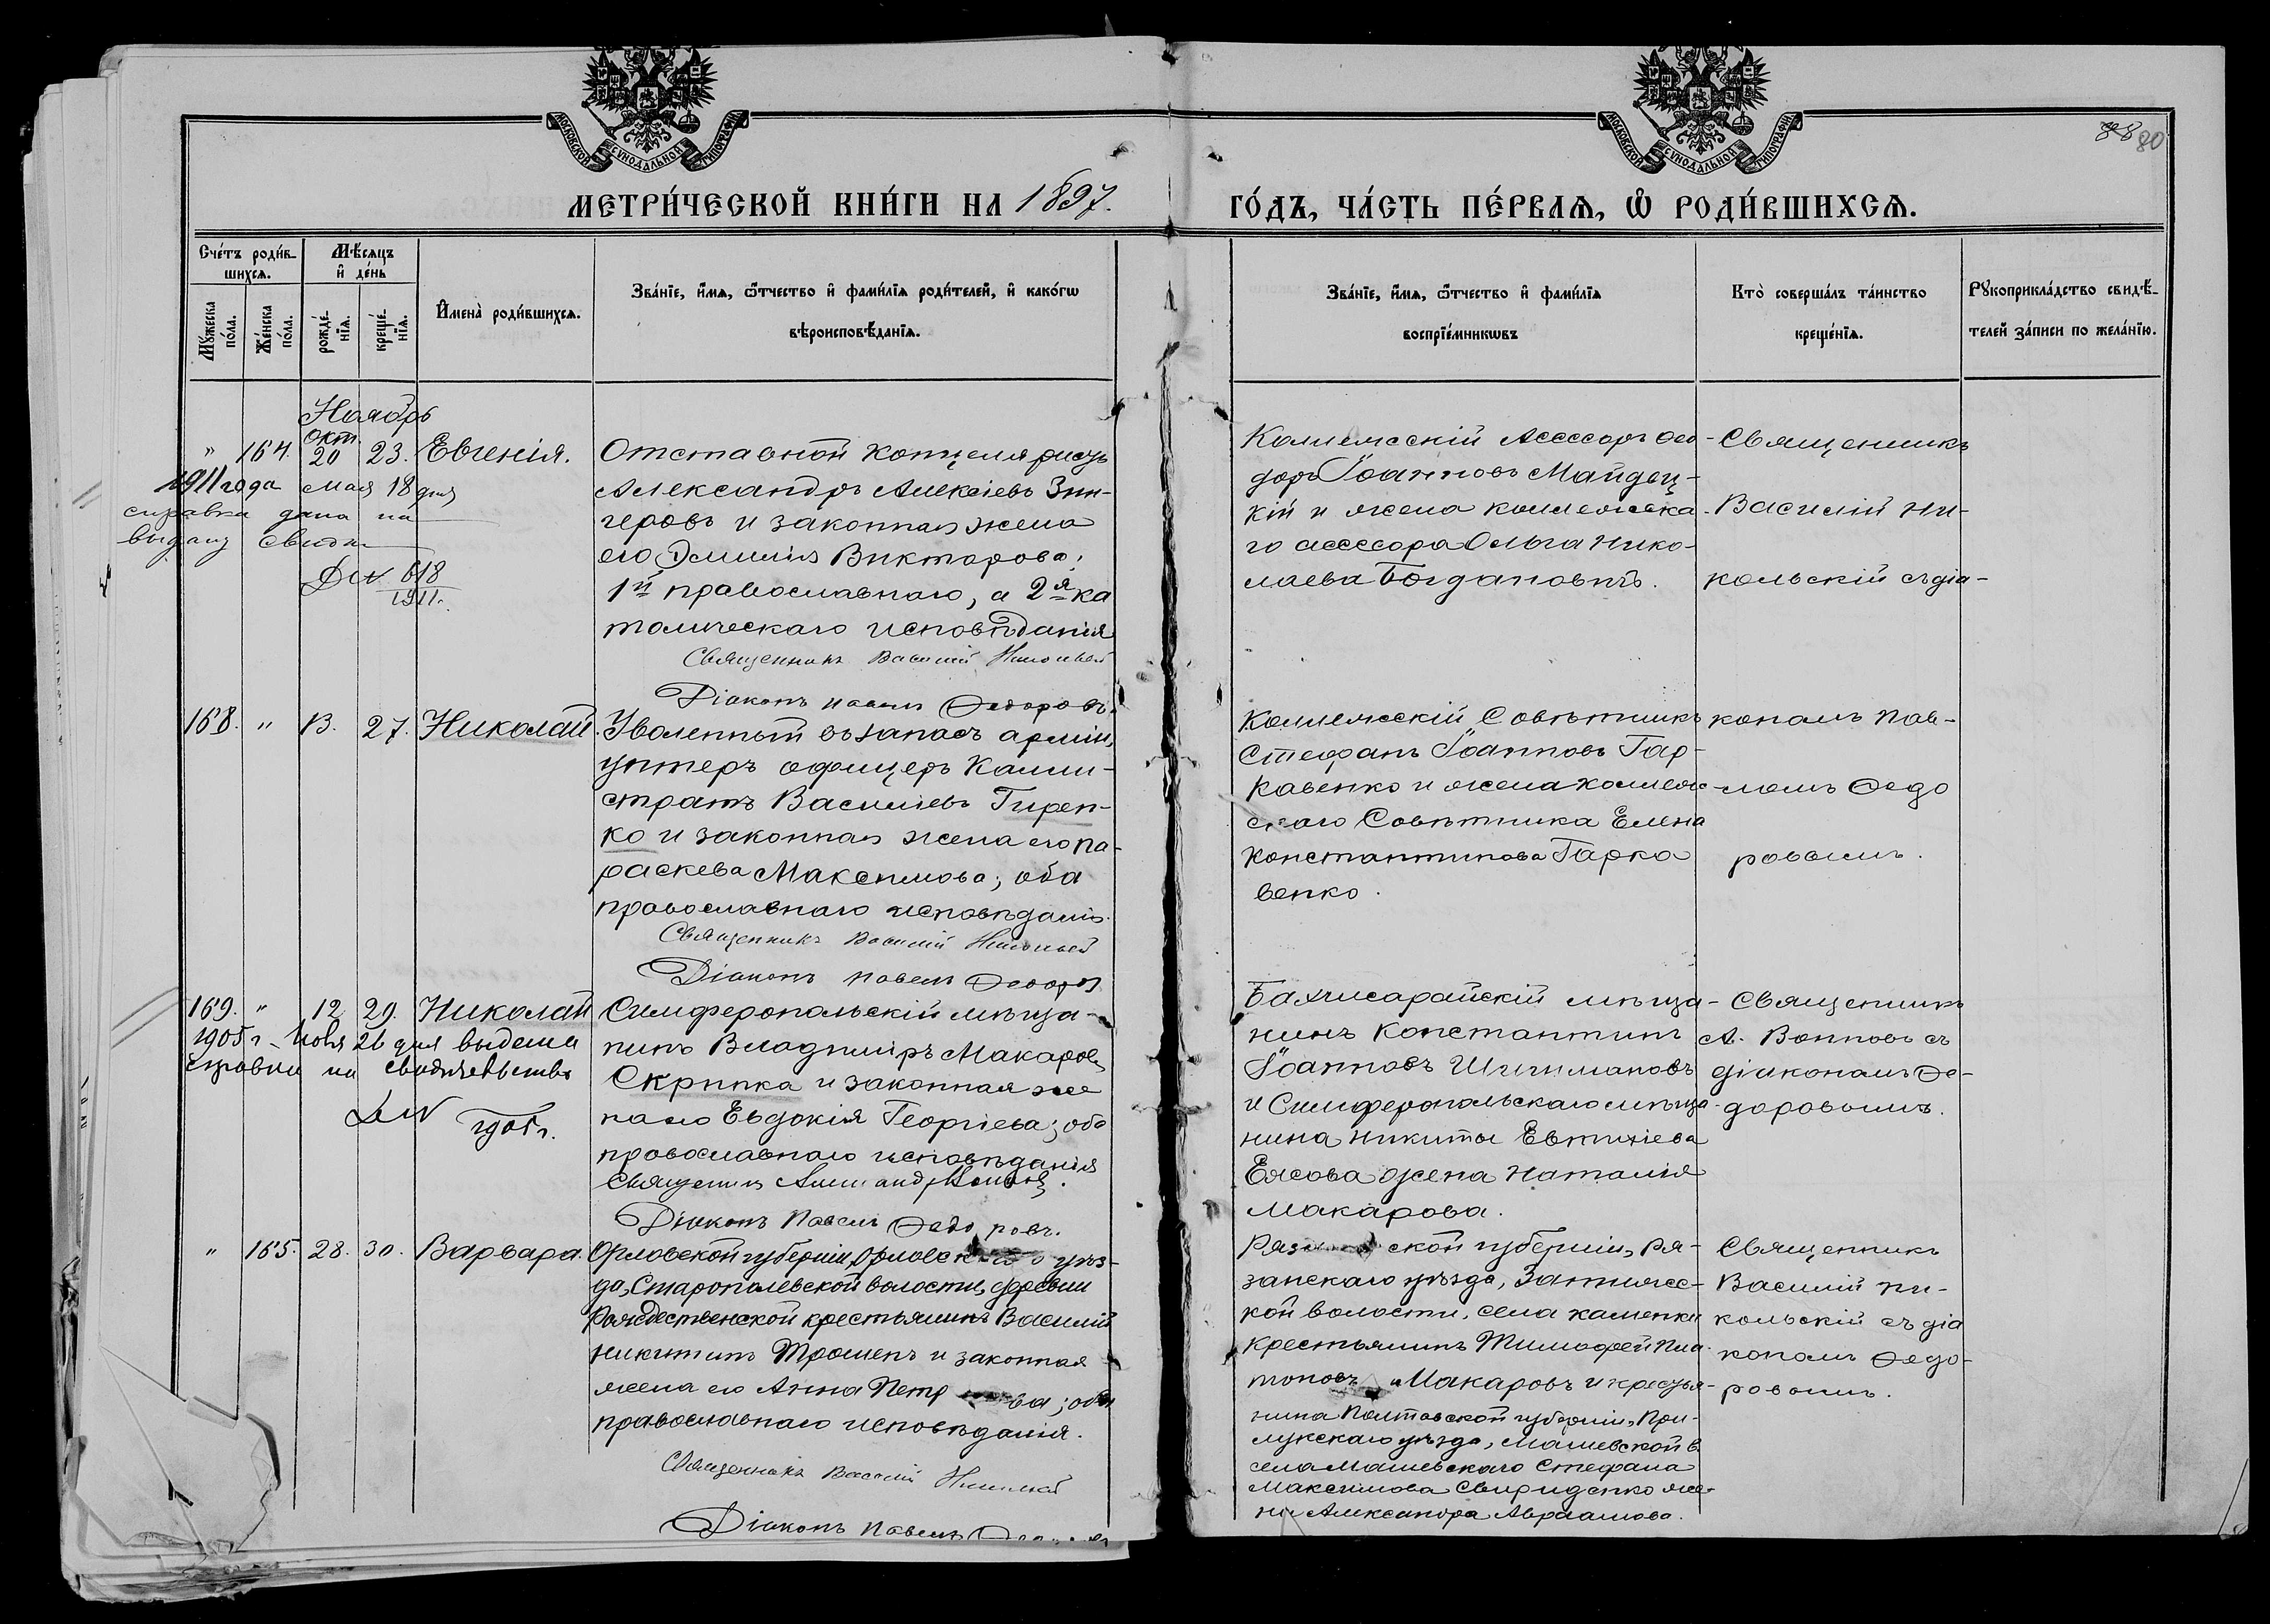 МОСКОВСКОЙ СУНОДАЛЬНОЙ ТИПОГРАФІИ
МОСКОВСКОЙ СУНОДАЛЬНОЙ ТИПОГРАФІИ
88 80
МЕТРИ́ЧЕСКОЙ КНИ́ГИ НА 1897.
ГО́ДЪ, ЧА́СТЬ ПЕ́РВАЯ, Ѿ РОДИ́ВШИХСЯ.
Сче́тъ роди́в-
шихся.
Мѣ́сяцъ
и҆ де́нь
Му́жеска по́ла.
Же́нска по́ла.
рожде́-
нїя.
креще́-
нїя.
И҆мена̀ роди́вшихся.
Зва́нїе, и҆́мя, ѻ҆́тчество и҆ фами́лїя роди́телей, и҆ како́гѡ
вѣроисповѣ́данїя.
Зва́нїе, и҆́мя, ѻ҆́тчество и҆ фами́лїя
воспрїе́мникѡвъ
Кто̀ соверша́лъ та́инство
креще́нїя.
Рꙋкоприкла́дство свидѣ́-
телей за́писи по жела́нїю.
Ноябрь
" 164. окт. 20 23. Евгенія.
1911 года мая 18 дня
справка дана на
выдачу свидѣ
№ 618
1911.
Отставной канцеляристъ
Александръ Алексіевъ Зин-
геровъ и законная жена
его Эмилія Викторова;
1й православнаго, а 2я ка
толическаго исповѣданія
Священникъ Василій Никольскій
Діаконъ Павелъ Федоровъ.
Коллежскій Асессоръ Ѳео-
доръ Іоанновъ Майдац-
кій и жена коллежска
го асессора Ольга Нико-
лаева Богдановичъ.
Священникъ
Василій Ни-
кольскій съ діа-
168. " 13. 27. Николай.
Уволенный въ запасъ арміи,
унтеръ офицеръ Калли-
стратъ Василіевъ Гирен-
ко и законная жена его Па-
раскева Максимова; оба
православнаго исповѣданія.
Священникъ Василій Никольскій
Діаконъ Павелъ Федоров
Коллежскій Совѣтникъ
Стефанъ Іоанновъ Гар-
кавенко и жена коллеж
скаго Совѣтника Елена
Константинова Гарка
венко.
кономъ Пав-
ломъ Ѳедо
ровымъ.
169. " 12 29. Николай
1905 г. Ноя 26 дня выдана
справка на свидѣтельство
№
1905 г.
Симферопольскій мѣща-
нинъ Владиміръ Макаровъ
Скрипка и законная же
на его Евдокія Георгіева; оба
православнаго исповѣданія
Священникъ Александръ Вонновъ.
Діаконъ Павелъ Федоровъ.
Бахчисарайскій мѣща-
нинъ Константинъ
Іоанновъ Шишмановъ
и Симферопольскаго мѣща-
нина Никиты Евтихіева
Елсова жена Наталія
Макарова.
Священникъ
А. Вонновъ съ
діакономъ Ѳе-
доровымъ.
" 165. 28. 30. Варвара.
Орловской губерніи, Орловскаго уѣз-
да, Старополевской волости, деревни
Рождественской крестьянинъ Василій
Никитинъ Трошенъ и законная
жена его Анна Петрова; оба
православнаго исповѣданія.
Священникъ Василій Никольскій
Діаконъ Павелъ
Рязанской губерніи, Ря-
занскаго уѣзда,
кой волости, села Каменки
крестьянинъ Тимофей Пла
тоновъ Макаровъ и крестья-
нина Полтавской губерніи, При-
лукскаго уѣзда, Машевской в.
села Машевскаго Стефана
Максимова Свириденко же-
на Александра Авраамова.
Священникъ
Василій Ни-
кольскій съ діа
кономъ Ѳедо-
ровымъ.